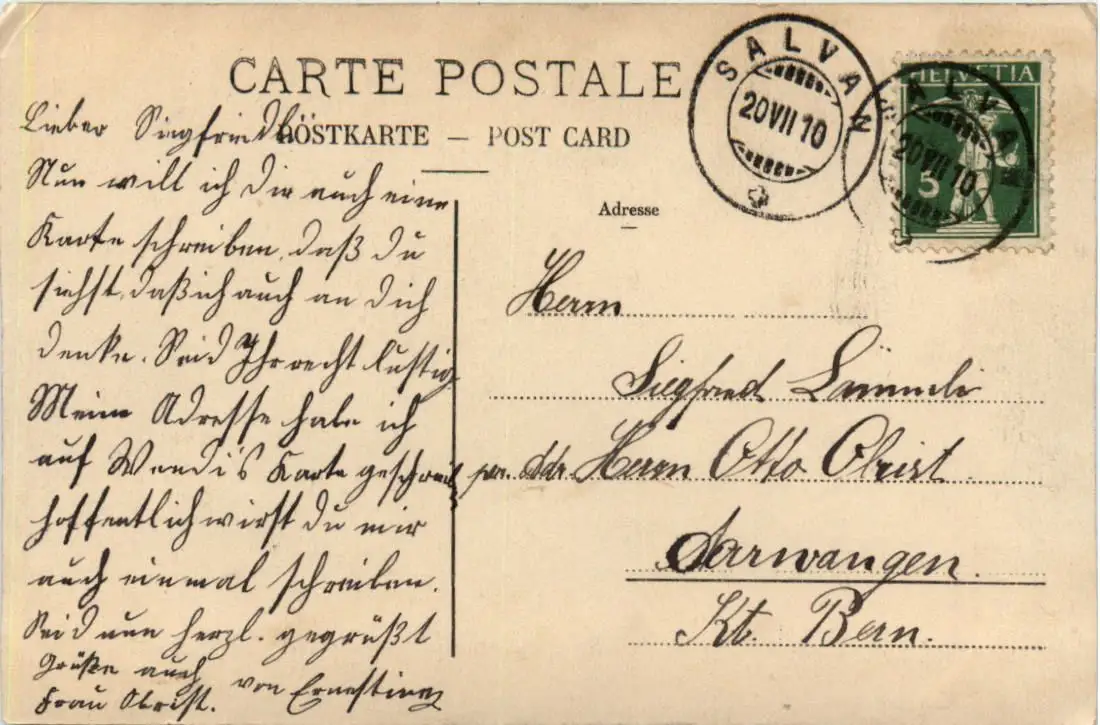 CARTE POSTALE
POSTKARTE — POST CARD
SALVAN
20 VII 10
HELVETIA
5
SALVAN
20 VII 10
Lieber Siegfried!
Nun will ich Dir auch eine
Karte schreiben, daß du
siehst, daß ich auch an dich
denke. Seid Ihr recht lustig
Meine Adresse habe ich
auf Wendi's Karte geschrieb
hoffentlich wirst du mir
auch einmal schreiben.
Seid nun herzl. gegrüßt
von Ernestine
Grüße auch
Frau Obrist.
Adresse
Herrn
Siegfried Lämmli
per Adr. Herrn Otto Obrist.
Aarwangen.
Kt. Bern.